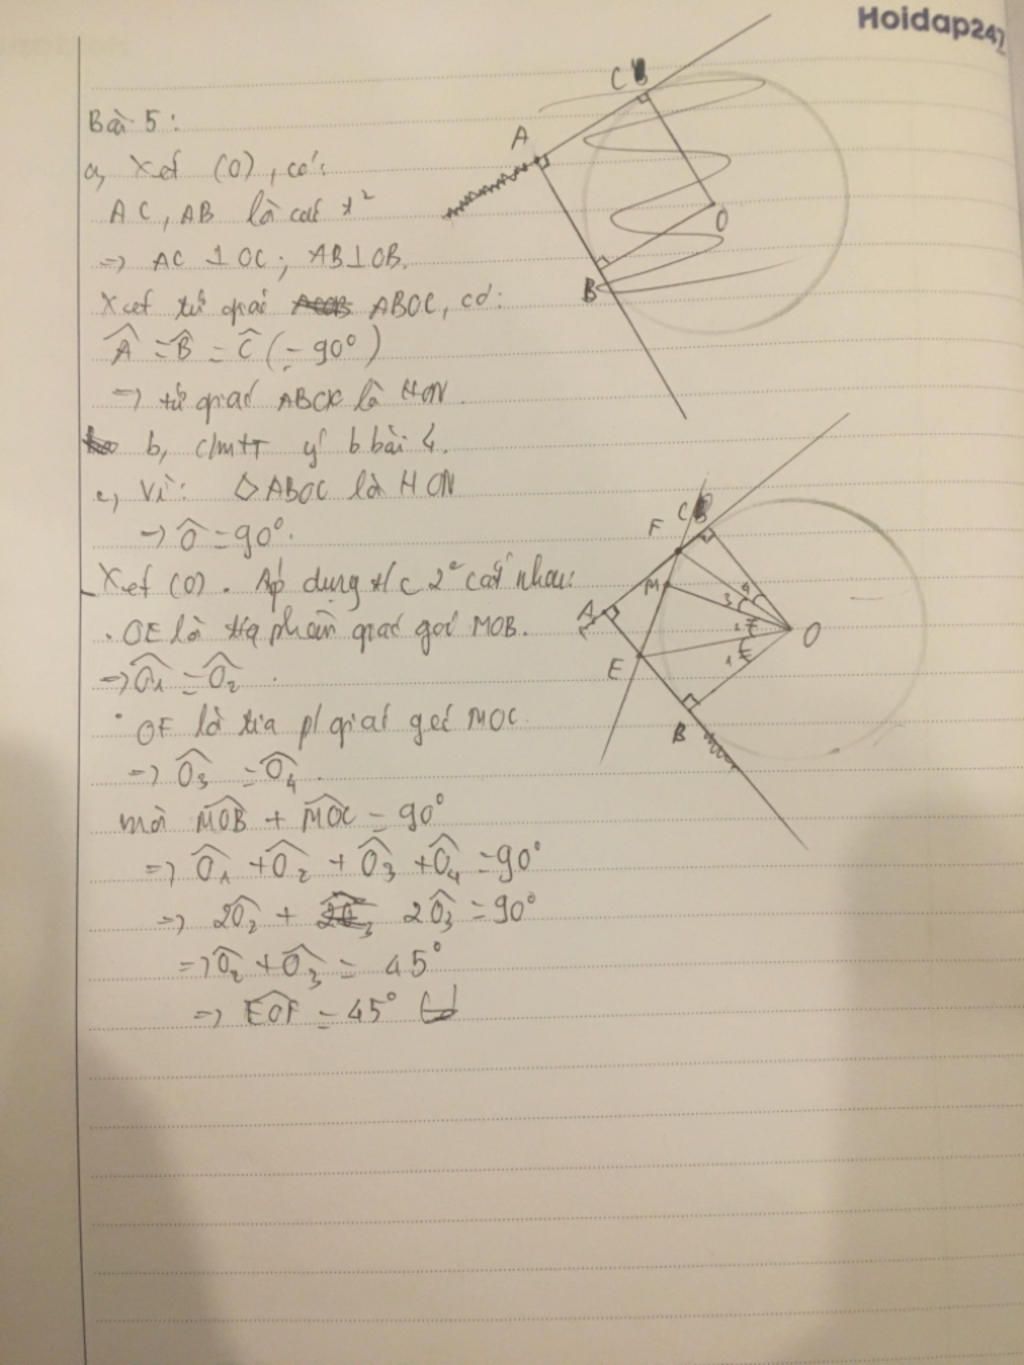 Hoidap247
Bài 5:
a, Xét (O), có:
AC, AB là các t²
=> AC ⊥ OC; AB ⊥ OB.
Xét tứ giác ABOC, có:
Â = B̂ = Ĉ (= 90°)
=> tứ giác ABOC là HCN.
b, c/mtt ý b bài 4.
c, Vì: ABOC là HCN
=> Ô = 90°.
Xét (O). Áp dụng t/c 2 cắt nhau:
. OE là tia phân giác góc MOB.
=> Ô1 = Ô2.
. OF là tia p/giác góc MOC.
=> Ô3 = Ô4.
mà MOB + MOC = 90°
=> Ô1 + Ô2 + Ô3 + Ô4 = 90°
=> 2Ô2 + 2Ô3 = 90°
=> Ô2 + Ô3 = 45°
=> EOF = 45°
C
A
O
B
F C
M
A
3 4
2
1
O
E
B